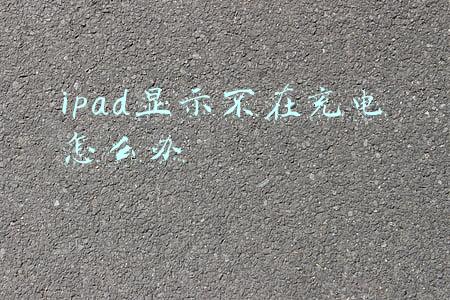 ipad显示不在充电
怎么办